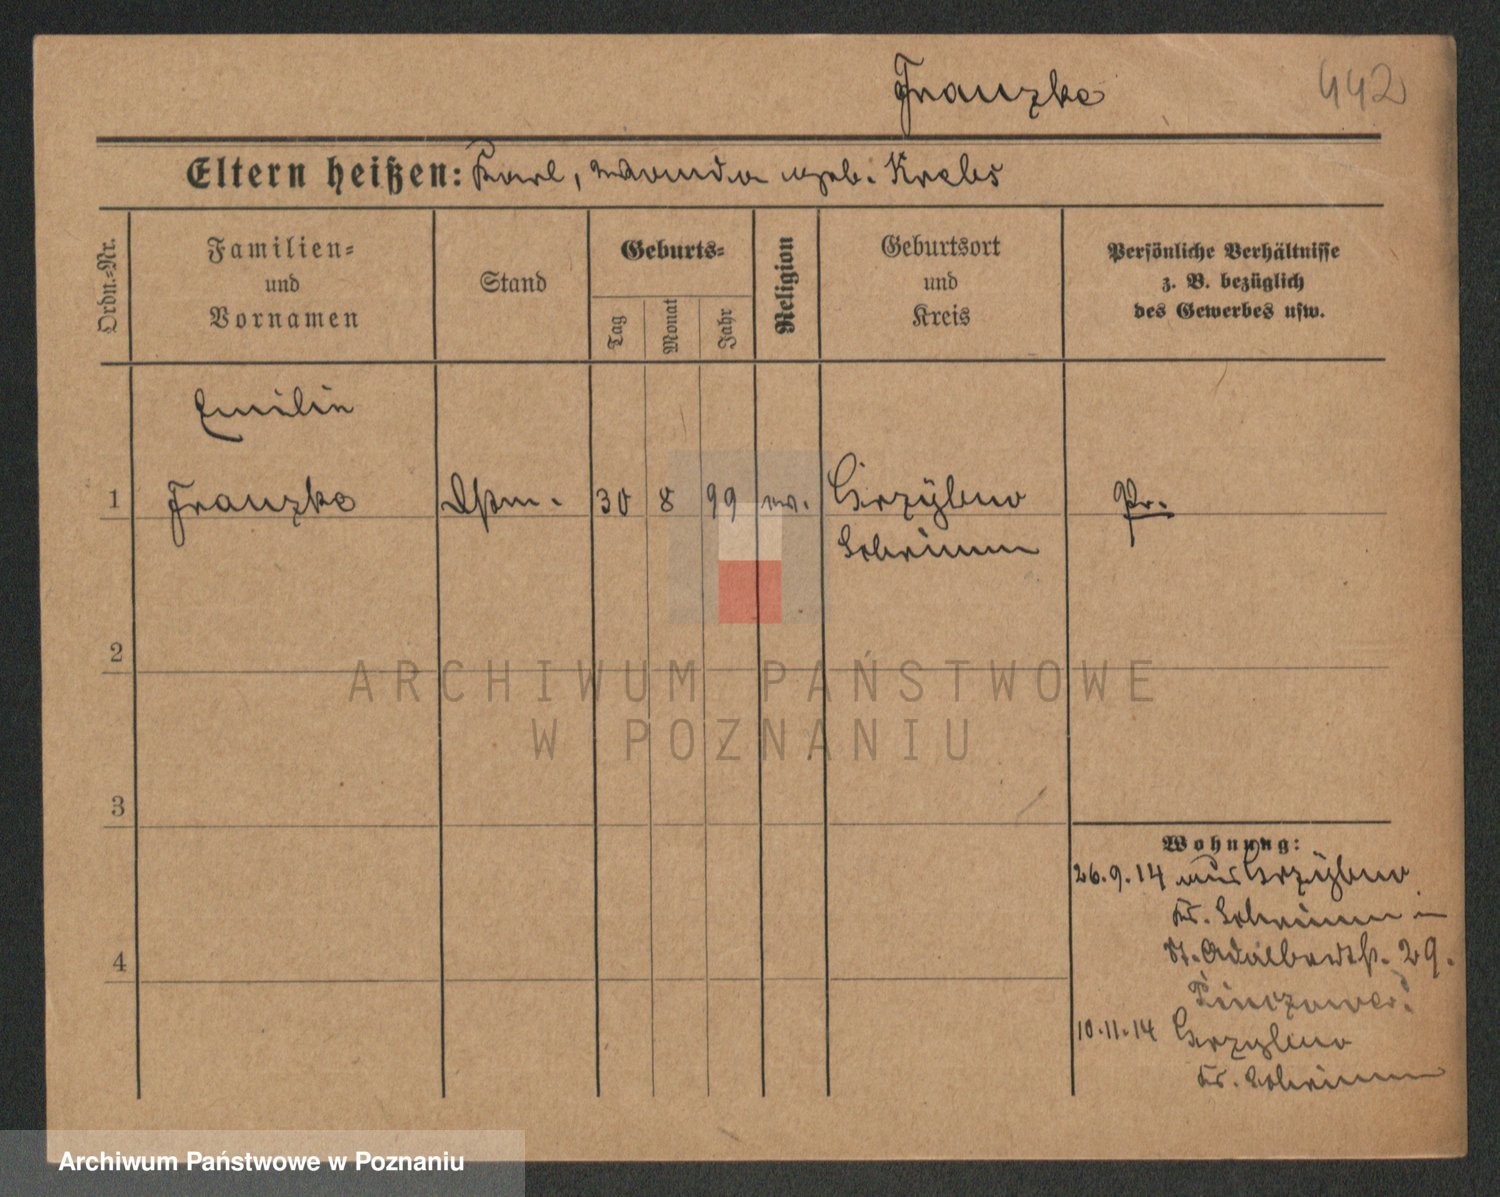 Franzke
442
Eltern heißen: Karl, Wanda geb. Krebs
Ordn.-Nr.
Familien-
und
Vornamen
Stand
Geburts-
Tag
Monat
Jahr
Religion
Geburtsort
und
Kreis
Persönliche Verhältnisse
z. B. bezüglich
des Gewerbes usw.
Emilie
1 Franzke 30 8 99 ev. Grzybno Pr.
Schrimm
2
ARCHIWUM PAŃSTWOWE
W POZNANIU
3
Wohnung:
26.9.14 aus Grzybno
Kr. Schrimm in
St. Adalbertstr. 29.
4
10.11.14 Grzybno
Kr. Schrimm
Archiwum Państwowe w Poznaniu